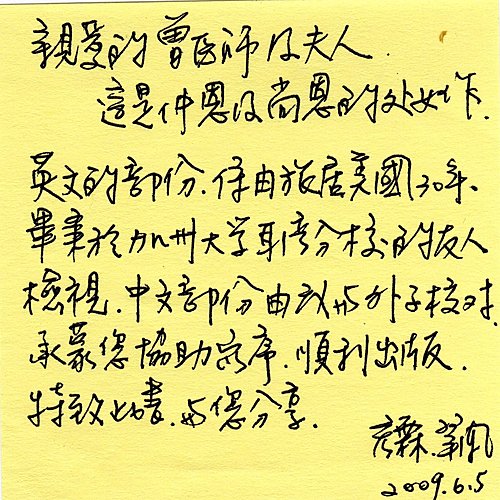 親愛的曾医師及夫人.
這是仲恩及尚恩的处女作.
英文的部份.係由旅居美國30年.
畢業於加州大学耳湾分校的友人
檢視.中文部份由我与外子校对.
承蒙您協助寫序.順利出版.
特致此書.与您分享.
2009.6.5